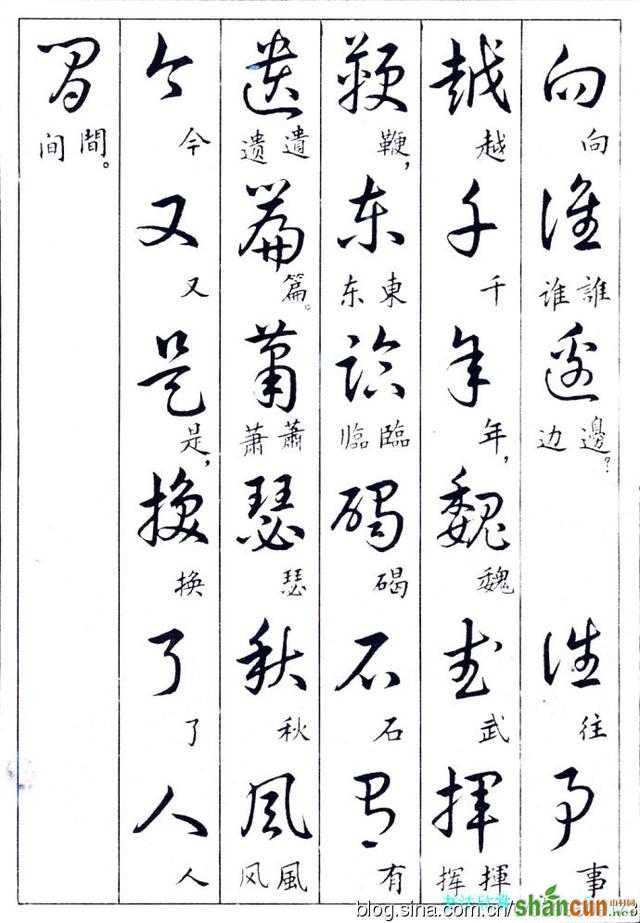 向誰邊往事
向誰谁邊?边往事
越千年魏武揮
越千年,魏武揮挥
鞭东臨碣石有
鞭,東东臨临碣石有
遺篇蕭瑟秋風
遺遗篇。蕭萧瑟秋風风
今又是换了人
今又是,换了人
間
間。间
blog.sina.com.cn/s
shancun
.net